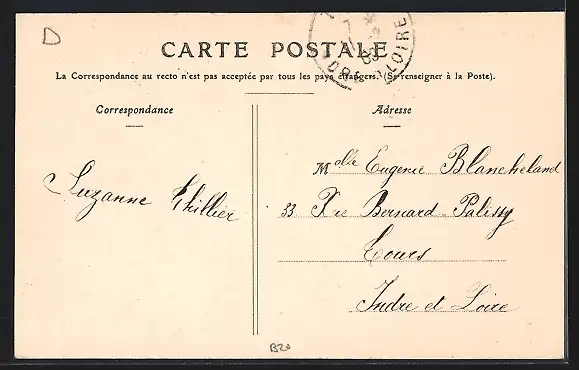 D
CARTE POSTALE
La Correspondance au recto n'est pas acceptée par tous les pays étrangers. (Se renseigner à la Poste).
Correspondance
Adresse
Melle Eugenie Blancheland
Suzanne
33 Bernard Palissy
Tours
Indre et Loire
LOIRE
B20